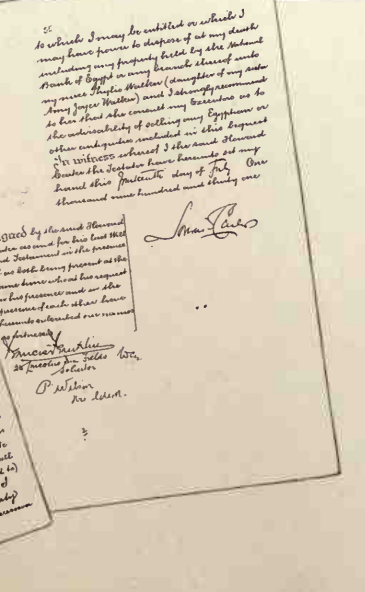 to which I may be entitled or which I
may have power to dispose of at my death
including any property held by the National
Bank of Egypt or any branch thereof unto
my niece Phyllis Walker (daughter of my sister
Amy Joyce Walker) and I strongly recommend
to her that she consult my Executors as to
the advisability of selling any Egyptian or
other antiquities included in this bequest
In witness whereof I the said Howard
Carter the Testator have hereunto set my
hand this day of July One
thousand nine hundred and thirty one
Signed by the said Howard
Carter as and for his last Will
and Testament in the presence
of us both being present at the
same time who at his request
in his presence and in the
presence of each other have
hereunto subscribed our names
as witnesses
Howard Carter
Lincolns Inn Fields
Solicitor
P Wilson